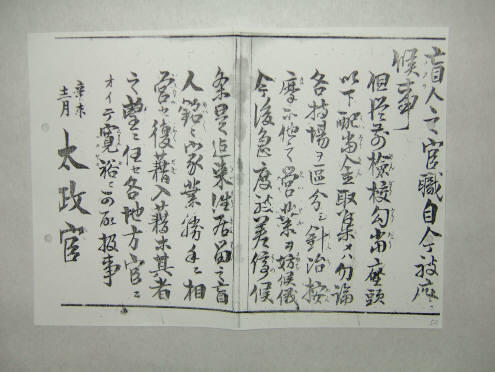 盲人之官職自今被廃
候事
但従前検校勾当座頭
以下配当金取集メハ勿論
各持場ヲ区分シ針治按
摩等他之営業ヲ妨候儀
今後急度被差停候
条是迄来住居留之盲
人銘々家業勝手ニ相
営復籍入籍等其者
之望ニ任セ各地方官ニ
オイテ寛裕ニ可取扱事
辛未
十一月
太政官